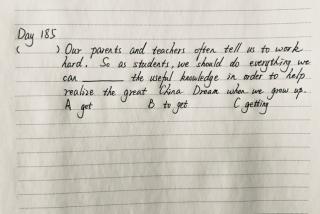 Day 185
( ) Our parents and teachers often tell us to work
hard. So as students, we should do everything we
can ______ the useful knowledge in order to help
realize the great China Dream when we grow up.
A get B to get C getting